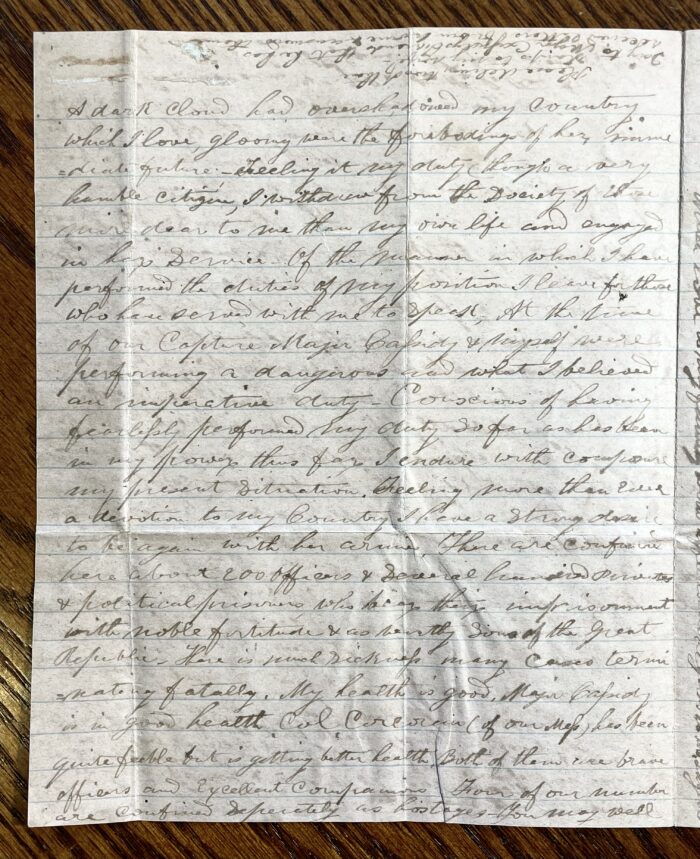 A dark cloud had overshadowed my Country
which I love, gloomy were the forebodings of her imme
=diate future. - Feeling it my duty though a very
humble citizen, I withdrew from the Society of those
more dear to me than my own life and engaged
in her Service. Of the manner in which I have
performed the duties of my position I leave for those
who have served with me to Speak, At the time
of our Capture Major Casidy & myself were
performing a dangerous and what I believed
an imperative duty - Conscious of having
faithfully performed my duty so far as has been
in my power, thus far I endure with composure
my present Situation. Feeling more than Ever
a devotion to my Country I have a Strong desire
to be again with her armies, There are confined
here about 200 Officers & Several hundred Privates
& political prisoners who bear their imprisonment
with noble fortitude & as worthy Sons of the Great
Republic - There is much Sickness many cases termi
=nating fatally. My health is good, Major Casidy
is in good health Col Corcoran (of our Mess) has been
quite feeble but is getting better health, Both of them are brave
officers and Excellent Companions Four of our number
are confined Seperately as hostages - You may well